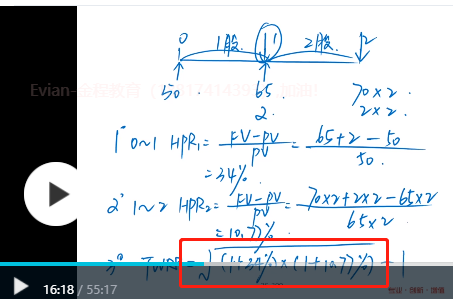 0 1股. 1 2股. 2
50 65 70×2
2. 2×2.
1° 0~1 HPR₁= FV-PV/PV = 65+2-50/50
=34%
2° 1~2 HPR₂= FV-PV/PV = 70×2+2×2-65×2/65×2
=10.77%
3° TWRR= √(1+34%)×(1+10.77%) -1
16:18 / 55:17